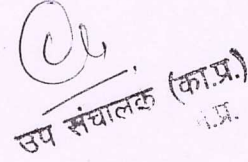 उप संचालक (का.प्र.)